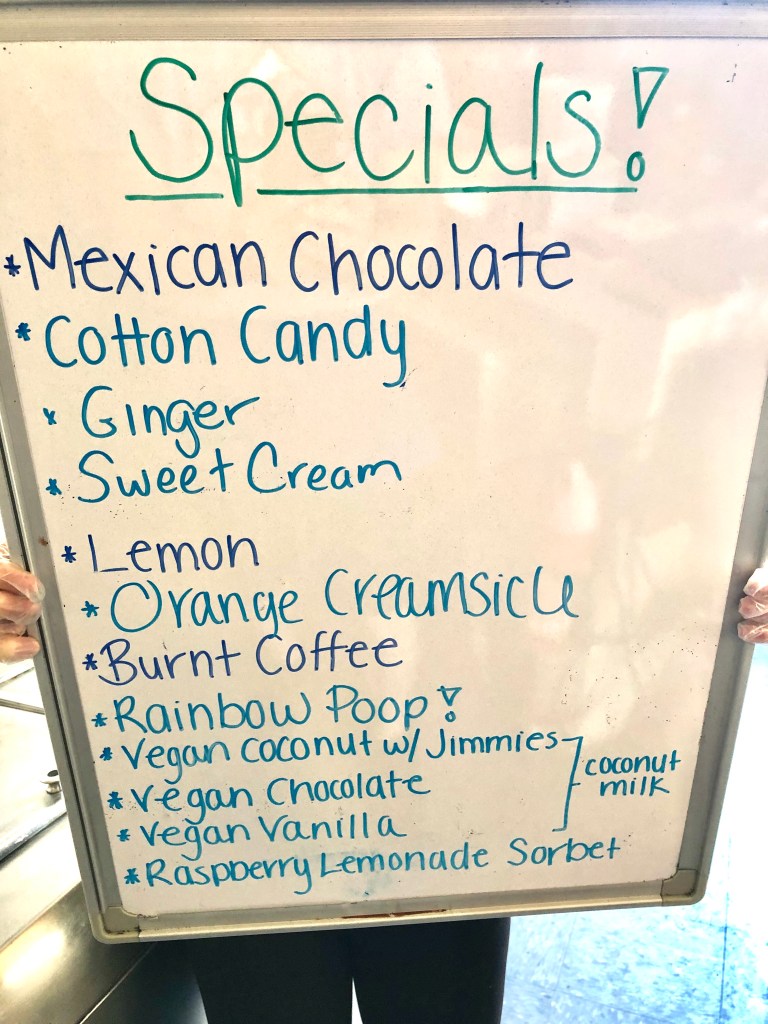 Specials!
*Mexican Chocolate
*Cotton Candy
*Ginger
*Sweet Cream
*Lemon
*Orange Creamsicle
*Burnt Coffee
*Rainbow Poop!
*Vegan Coconut w/ Jimmies
*Vegan Chocolate
*Vegan Vanilla
coconut
milk
*Raspberry Lemonade Sorbet